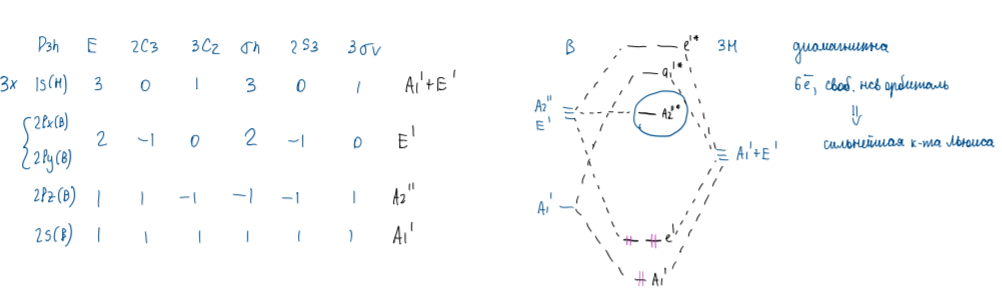 D3h E 2C3 3C2 σh 2S3 3σv
3x 1s(H) 3 0 1 3 0 1 A1'+E'
2Px(B)
2Py(B)
2 -1 0 2 -1 0 E'
2Pz(B) 1 1 -1 -1 -1 1 A2''
2S(B) 1 1 1 1 1 1 A1'
B 3H
e'*
a1'*
A2''*
A2''
E'
A1'+E'
A1'
e'
A1'
диамагнитна
6ē, своб. нсв орбиталь
⇓
сильнейшая к-та Льюиса